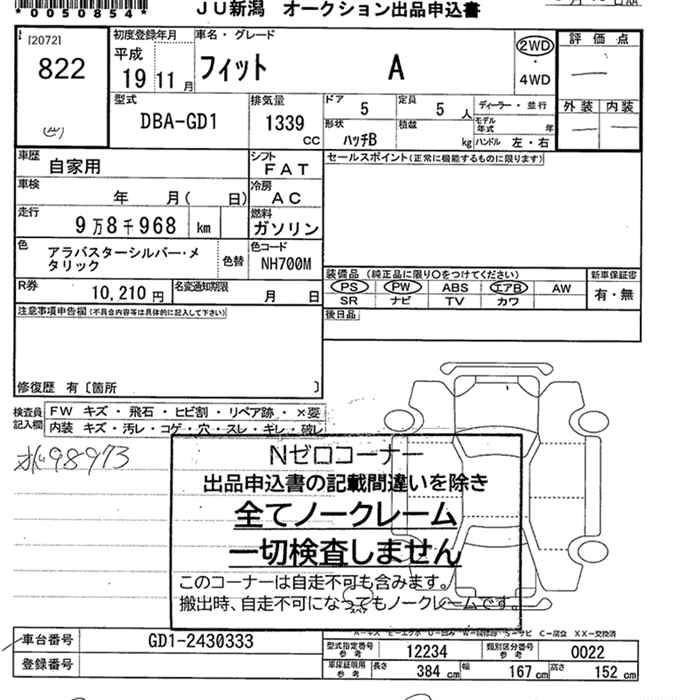 *0050854*
JU新潟 オークション出品申込書
[2072]
822
初度登録年月
平成
19 11 月
車名・グレード
フィット A
2WD
・
4WD
評価点
外装 内装
型式
DBA-GD1
排気量
1339 cc
ドア 5
定員 5 人
ディーラー・並行
形状 ハッチB
積載 kg
モデル年式 年
ハンドル 左・右
車歴 自家用
シフト FAT
セールスポイント(正常に機能するものに限ります)
車検 年 月( 日)
冷房 AC
走行 9万8千968 km
燃料 ガソリン
色 アラバスターシルバー・メタリック
色替
色コード NH700M
装備品 (純正品に限り○をつけてください)
新車保証書
PS PW ABS エアB AW
SR ナビ TV カワ
有・無
R券 10,210 円
名変通知期限 月 日
後日品
注意事項申告欄(不具合内容等は具体的に記入して下さい)
修復歴 有〔箇所 〕
検査員記入欄
FW キズ・飛石・ヒビ割・リペア跡・×要
内装 キズ・汚レ・コゲ・穴・スレ・キレ・破レ
98973
Nゼロコーナー
出品申込書の記載間違いを除き
全てノークレーム
一切検査しません
このコーナーは自走不可も含みます。
搬出時、自走不可になってもノークレームです。
車台番号 GD1-2430333
登録番号
型式指定番号 参考 12234
類別区分番号 参考 0022
車庫証明用 参考 長さ 384 cm 幅 167 cm 高さ 152 cm